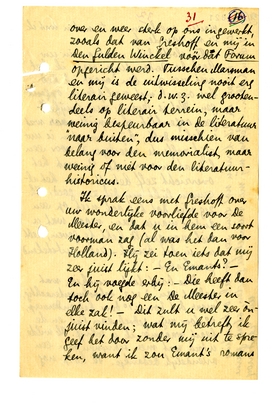 31 16
over en weer sterk op ons ingewerkt,
zooals dat van Greshoff en mij in
den Gulden Winckel vóór dat Forum
opgericht werd. Tusschen Marsman
en mij is de uitwisseling nooit erg
literair geweest; d.w.z. wel grooten-
deels op literair terrein, maar
weinig bespeurbaar in de literatuur
"naar buiten", dus misschien van
belang voor den memorialist, maar
weinig of niet voor den literatuur-
historicus.
Ik sprak eens met Greshoff over
uw wonderlijke voorliefde voor De
Meester, en dat u in hem een soort
voorman zag (al was het dan voor
Holland). Hij zei toen iets dat mij
zeer juist lijkt: – En Emants? –
En hij voegde erbij: – Die heeft dan
toch ook nog een De Meester in
elke zak! – Dit zult u wel zeer on-
juist vinden; wat mij betreft, ik
geef het door zonder mij uit te spre-
ken, want ik zou Emant's romans